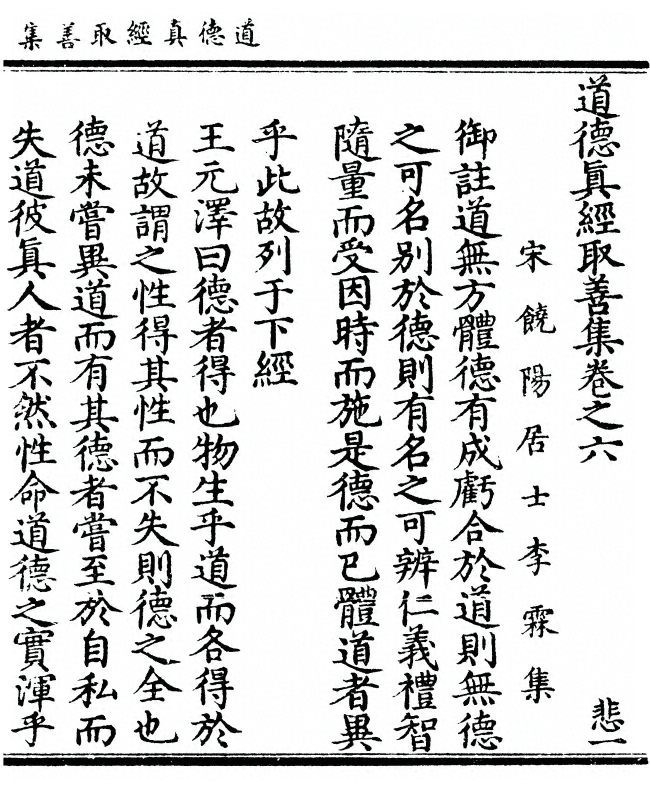 道德真經取善集
道德真經取善集卷之六 悲一
宋饒陽居士李霖集
御註道無方體德有成虧合於道則無德
之可名別於德則有名之可辨仁義禮智
隨量而受因時而施是德而已體道者異
乎此故列于下經
王元澤曰德者得也物生乎道而各得於
道故謂之性得其性而不失則德之全也
德未嘗異道而有其德者嘗至於自私而
失道彼真人者不然性命道德之實渾乎